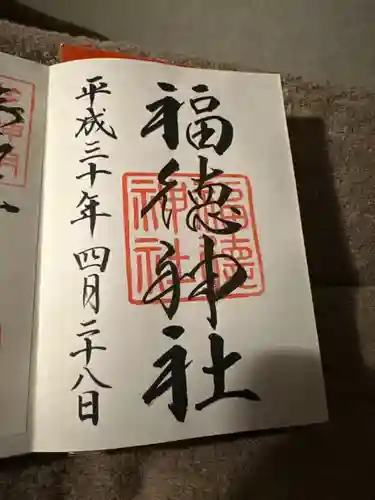 福徳神社
平成三十年四月二十八日
福徳
神社